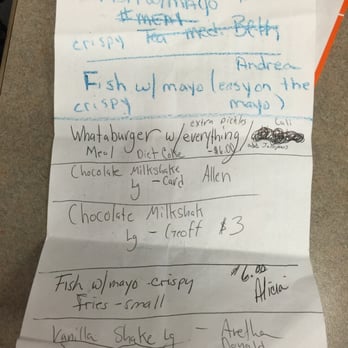 Fish w/mayo
#meal
Tea med. Betty
crispy
Andrea
Fish w/ mayo (easy on the
crispy mayo)
extra pickles Cali
Whataburger w/everything/
Meal Diet Coke -$6.00 add Jalapenos
Chocolate Milkshake
lg - Card Allen
Chocolate Milkshak
lg - Geoff $3
Fish w/mayo -crispy $6.00
Fries -small Alicia
Vanilla Shake Lg - Aretha
Donald